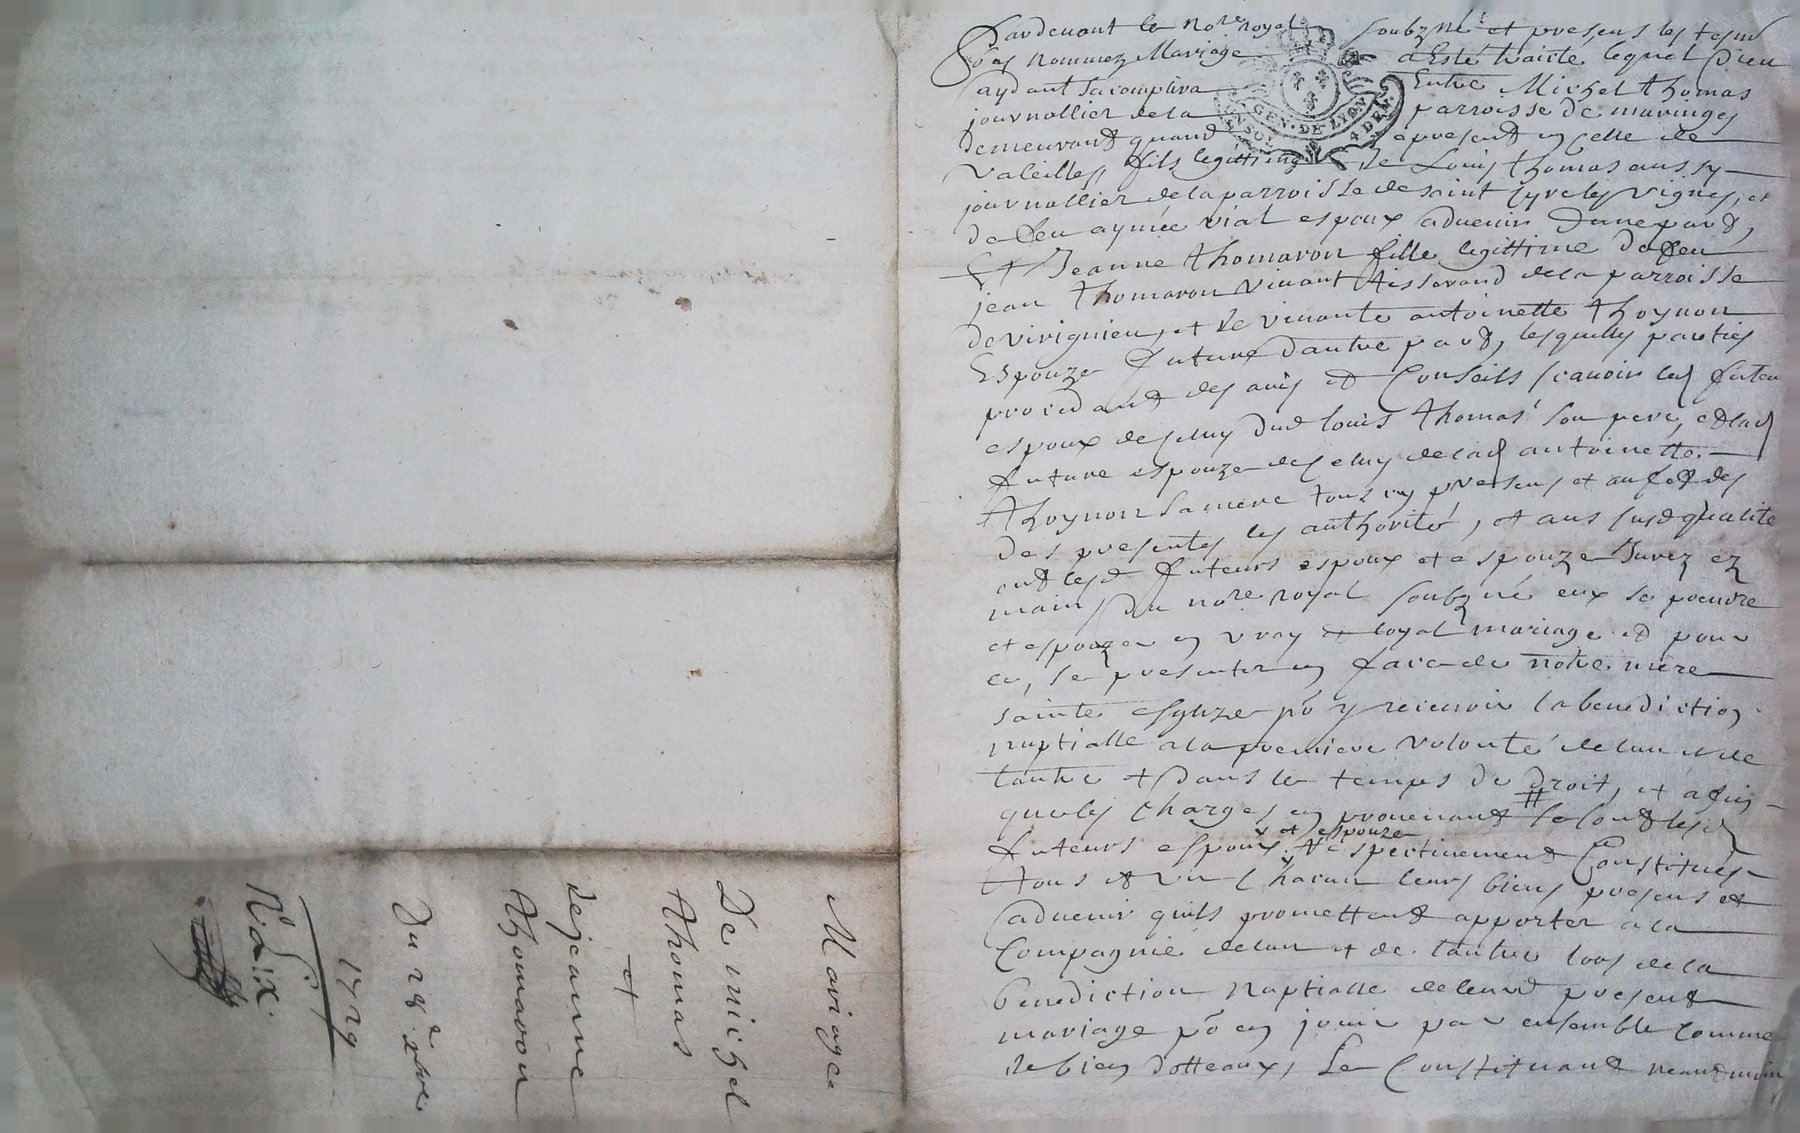 Mariage
De michel
thomas
et
de jeanne
thomaron
Du 28e xbre
1729
No dix
Pardevant le nore royal soubzné et presens les tesm
bas nommez Mariage a Esté traicté lequel Dieu
aydant sacomplira Entre Michel thomas
journallier de la parroisse de maringes
demeurant quand apresent en celle de
Valeilles, fils legittime de Louis thomas aussy
journallier de la parroisse de saint Cyr les Vignes, et
de feu aymée vial espoux advenir Dune part,
Et Jeanne thomaron fille legittime de feu
jean thomaron vivant tisserand de la parroisse
de virignieu, et de vivante antoinette thoynon
Espouze future dautre part, lesquelles parties
procedant des avis et Conseils scavoir led futeur
espoux de celuy dud louis thomas son pere, et lad
future espouze de celuy de lad antoinette
thoynon sa mere tous icy presens et au fet des
des presentes les authorité, et aus susd qualité
ont lesd futeurs espoux et espouze Jurez ez
mains du nore royal soubzné eux se prendre
et espouzer en vray et loyal mariage et pour
ce, se presenter en face de notre mere
sainte esglize po y recevoir la benediction
nuptialle a la premiere volonté de lun et de
lautre et dans le temps de Droit, et afin
que les charges en provenant se sont lesd
futeurs espoux et espouze respectivement Constitués
tous et un chacun leurs biens presens et
advenir quils promettent apporter a la
Compagnie de lun et de lautre lors de la
benediction Nuptialle de leurd present
mariage po en jouir par ensemble comme
de bien dotteaux, se Constituant neantmoin
GEN. DE LYON